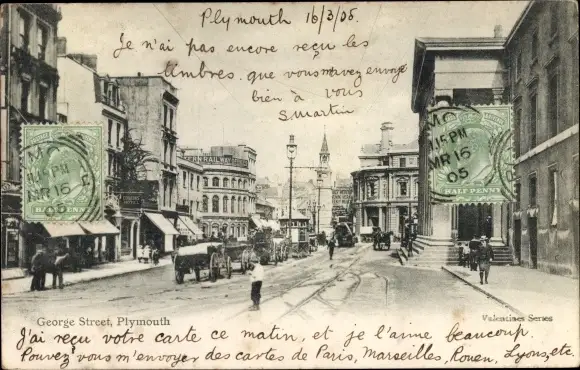 Plymouth 16/3/05.
Je n'ai pas encore reçu les
timbres, que vous m'avez envoyé
bien à vous
S Martin
5.15 PM
MR 16
05
HALF PENNY
5.15 PM
MR 16
05
HALF PENNY
George Street, Plymouth
Valentines Series
J'ai reçu votre carte ce matin, et je l'aime beaucoup.
Pouvez vous m'envoyer des cartes de Paris, Marseilles, Rouen, Lyons, etc.